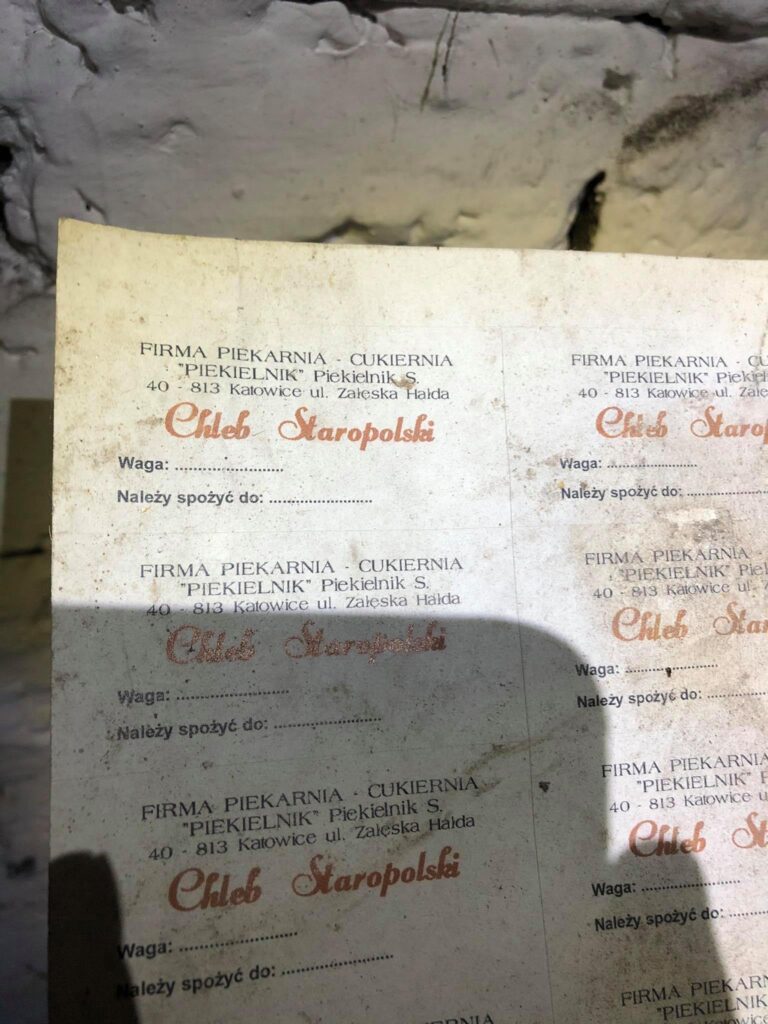 FIRMA PIEKARNIA - CUKIERNIA
"PIEKIELNIK" Piekielnik S.
40 - 813 Katowice ul. Załęska Hałda
Chleb Staropolski
Waga: ........................
Należy spożyć do: .......................
FIRMA PIEKARNIA - CU
"PIEKIELNIK" Piekiel
40 - 813 Katowice ul. Załę
Chleb Starop
Waga: ....................
Należy spożyć do: ..................
FIRMA PIEKARNIA - CUKIERNIA
"PIEKIELNIK" Piekielnik S.
40 - 813 Katowice ul. Załęska Hałda
Chleb Staropolski
Waga: ........................
Należy spożyć do: .......................
FIRMA PIEKARNIA -
"PIEKIELNIK" Piel
40 - 813 Katowice ul.
Chleb Star
Waga: ....................
Należy spożyć do: ...............
FIRMA PIEKARNIA - CUKIERNIA
"PIEKIELNIK" Piekielnik S.
40 - 813 Katowice ul. Załęska Hałda
Chleb Staropolski
Waga: ........................
Należy spożyć do: .......................
FIRMA PIEKARNIA
"PIEKIELNIK"
40 - 813 Katowice u
Chleb St
Waga: ....................
Należy spożyć do: ..........
FIRMA PIEKARN
"PIEKIELNIK